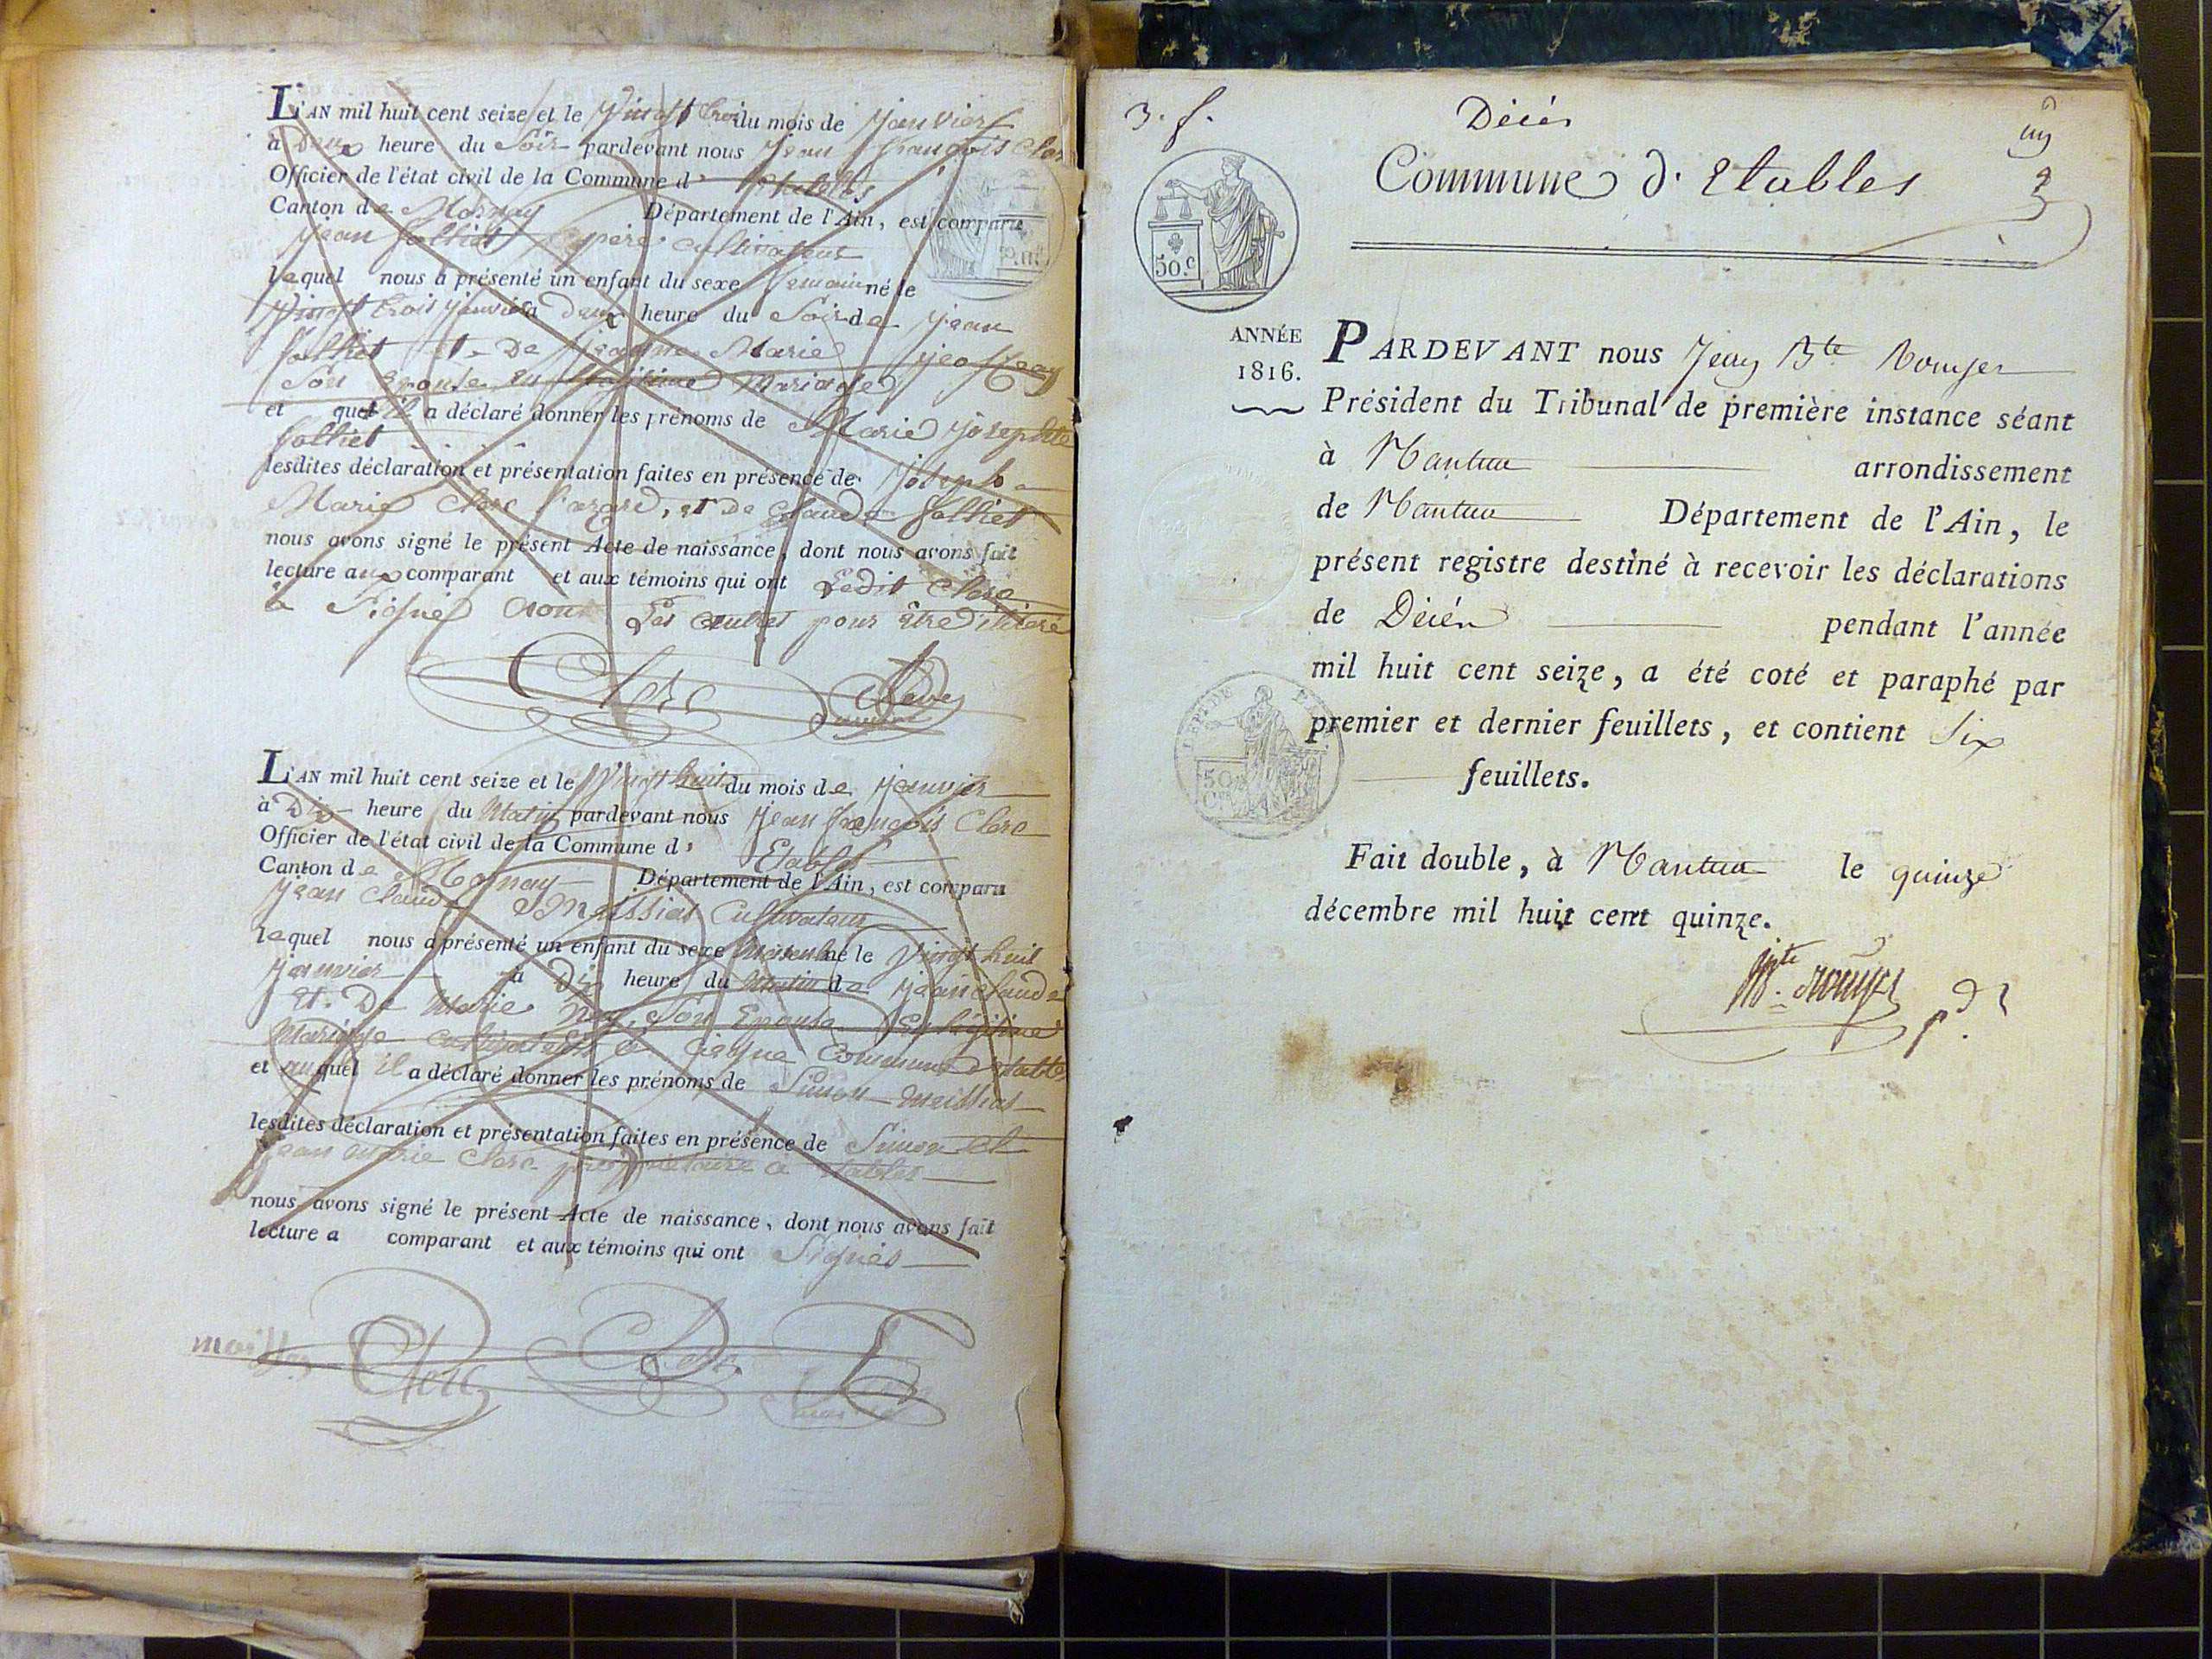 L'AN mil huit cent seize et le Vingt trois du mois de janvier
à Deux heure du Soir pardevant nous Jean François Clerc
Officier de l'état civil de la Commune d' Etables
Canton de Mornay Département de l'Ain, est comparu
Jean père cultivateur
lequel nous a présenté un enfant du sexe né le
Vingt trois janvier à Deux heure du Soir de Jean
et De Jeanne Marie
Son Epouse En légitime Mariage
et quel il a déclaré donner les prénoms de Marie Josephte
lesdites déclaration et présentation faites en présence de Joseph
Marie Clerc, et De Claude
nous avons signé le présent Acte de naissance, dont nous avons fait
lecture aux comparant et aux témoins qui ont Ledit Clerc
a Signé Les autres pour être
Clerc
L'AN mil huit cent seize et le Vingt huit du mois de janvier
à Dix heure du Matin pardevant nous Jean François Clerc
Officier de l'état civil de la Commune d' Etables
Canton de Mornay Département de l'Ain, est comparu
Jean Claude Cultivateur
lequel nous a présenté un enfant du sexe né le Vingt huit
janvier à Dix heure du Matin de Jean Claude
Et De Marie Son Epouse En légitime
Mariage Commune d'Etables
et auquel il a déclaré donner les prénoms de Simon
lesdites déclaration et présentation faites en présence de Simon et
Jean Marie Clerc propriétaire a Etables
nous avons signé le présent Acte de naissance, dont nous avons fait
lecture a comparant et aux témoins qui ont Signés
Clerc
3. f.
Décés
Commune d'Etables
50.c
ANNÉE
1816.
PARDEVANT nous Jean Bte Rouyer
Président du Tribunal de première instance séant
à Nantua arrondissement
de Nantua Département de l'Ain, le
présent registre destiné à recevoir les déclarations
de Décés pendant l'année
mil huit cent seize, a été coté et paraphé par
premier et dernier feuillets, et contient Six
feuillets.
Fait double, à Nantua le quinze
décembre mil huit cent quinze.
Bte Rouyer pdt